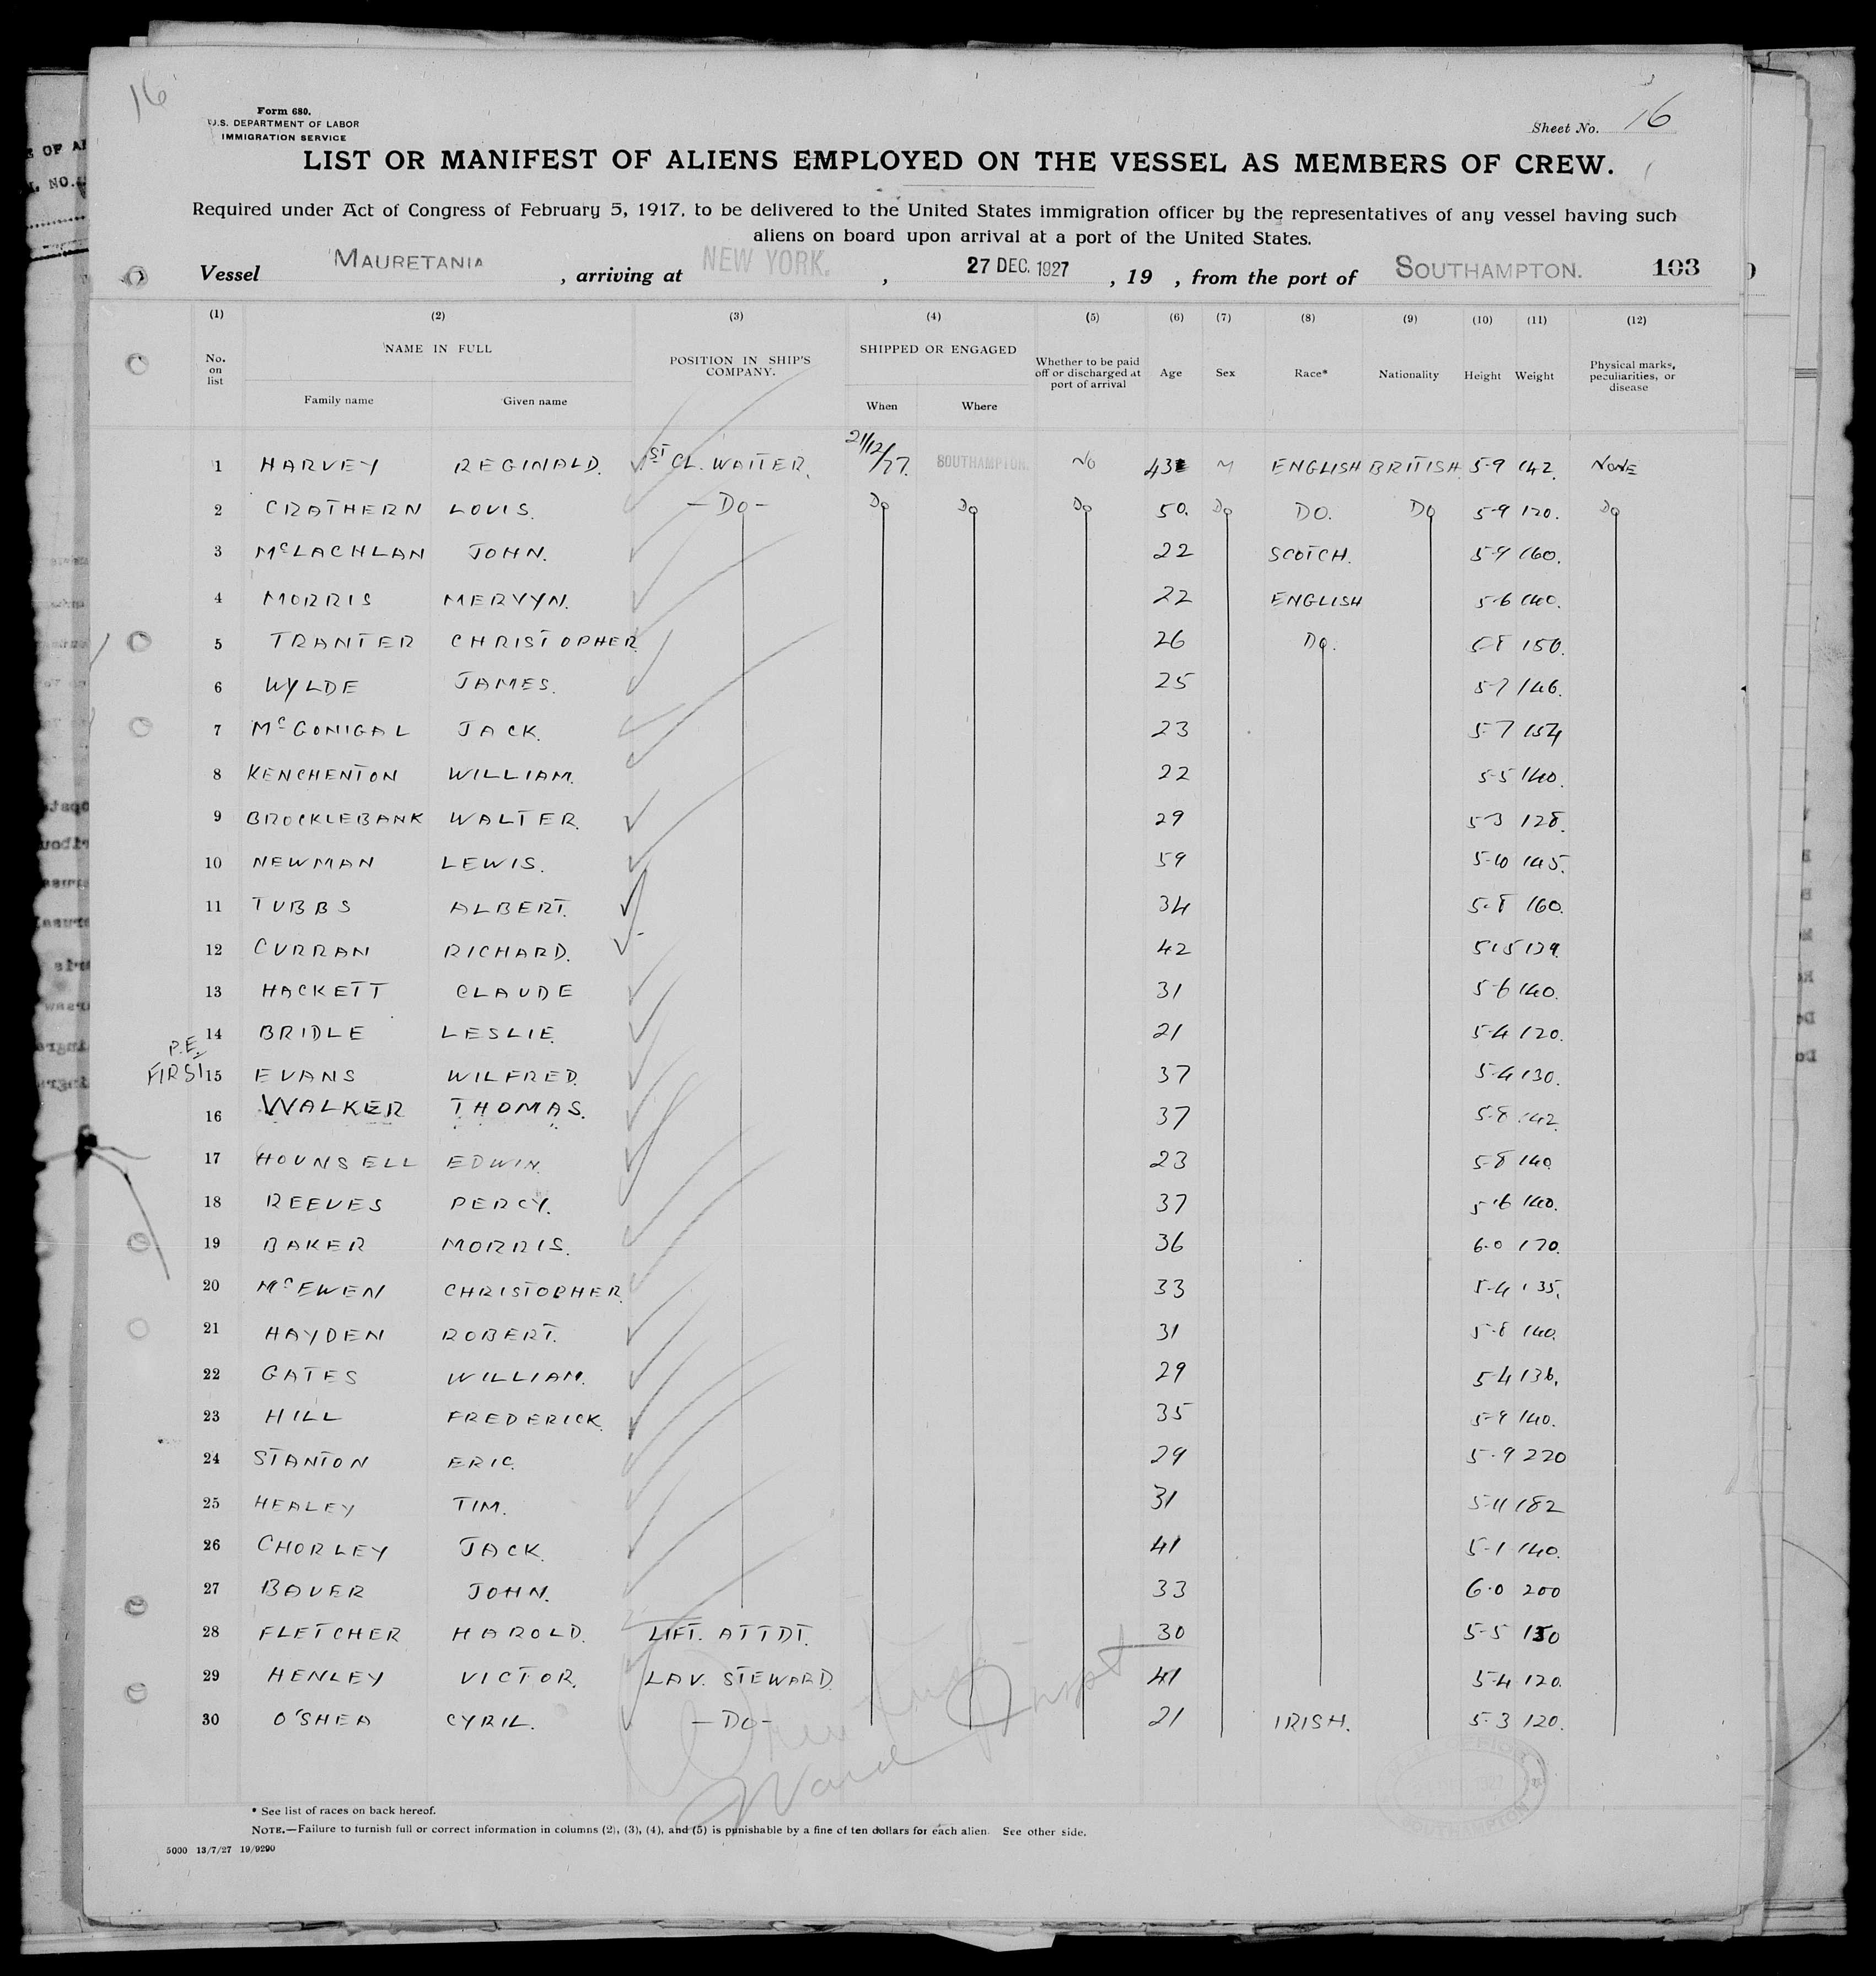 16
Form 680.
U.S. DEPARTMENT OF LABOR
IMMIGRATION SERVICE
Sheet No. 16
LIST OR MANIFEST OF ALIENS EMPLOYED ON THE VESSEL AS MEMBERS OF CREW.
Required under Act of Congress of February 5, 1917, to be delivered to the United States immigration officer by the representatives of any vessel having such
aliens on board upon arrival at a port of the United States.
Vessel MAURETANIA, arriving at NEW YORK., 27 DEC. 1927, 19 , from the port of SOUTHAMPTON. 103
(1) (2) (3) (4) (5) (6) (7) (8) (9) (10) (11) (12)
No. on list NAME IN FULL Family name Given name POSITION IN SHIP'S COMPANY. SHIPPED OR ENGAGED When Where Whether to be paid off or discharged at port of arrival Age Sex Race* Nationality Height Weight Physical marks, peculiarities, or disease
1 HARVEY REGINALD. 1ST CL. WAITER. 21/12/27. SOUTHAMPTON. No 43 M ENGLISH BRITISH 5-9 142. NONE
2 CRATHERN LOUIS. -Do- Do Do Do 50. Do DO. Do 5-9 120. Do
3 McLACHLAN JOHN. 22 SCOTCH. 5-9 160.
4 MORRIS MERVYN. 22 ENGLISH 5-6 140.
5 TRANTER CHRISTOPHER 26 Do. 5-8 150.
6 WYLDE JAMES. 25 5-7 146.
7 McGONIGAL JACK. 23 5-7 154
8 KENCHENTON WILLIAM. 22 5-5 140.
9 BROCKLEBANK WALTER. 29 5-3 128.
10 NEWMAN LEWIS. 59 5-10 145.
11 TUBBS ALBERT. 34 5-8 160.
12 CURRAN RICHARD. 42 5-5 139.
13 HACKETT CLAUDE 31 5-6 140.
14 BRIDLE LESLIE. 21 5-4 120.
P.E.
FIRST 15 EVANS WILFRED. 37 5-4 130.
16 WALKER THOMAS. 37 5-8 142.
17 HOUNSELL EDWIN. 23 5-8 140
18 REEVES PERCY. 37 5-6 140.
19 BAKER MORRIS. 36 6-0 170.
20 McEWEN CHRISTOPHER. 33 5-4 135.
21 HAYDEN ROBERT. 31 5-8 140.
22 GATES WILLIAM. 29 5-4 136.
23 HILL FREDERICK. 35 5-9 140.
24 STANTON ERIC. 29 5-9 220
25 HEALEY TIM. 31 5-11 182
26 CHORLEY JACK. 41 5-1 140.
27 BAUER JOHN. 33 6-0 200
28 FLETCHER HAROLD. LIFT. ATTDT. 30 5-5 150
29 HENLEY VICTOR. LAV. STEWARD. 41 5-4 120.
30 O'SHEA CYRIL. -Do- 21 IRISH. 5-3 120.
* See list of races on back hereof.
NOTE.—Failure to furnish full or correct information in columns (2), (3), (4), and (5) is punishable by a fine of ten dollars for each alien. See other side.
5000 13/7/27 19/9290